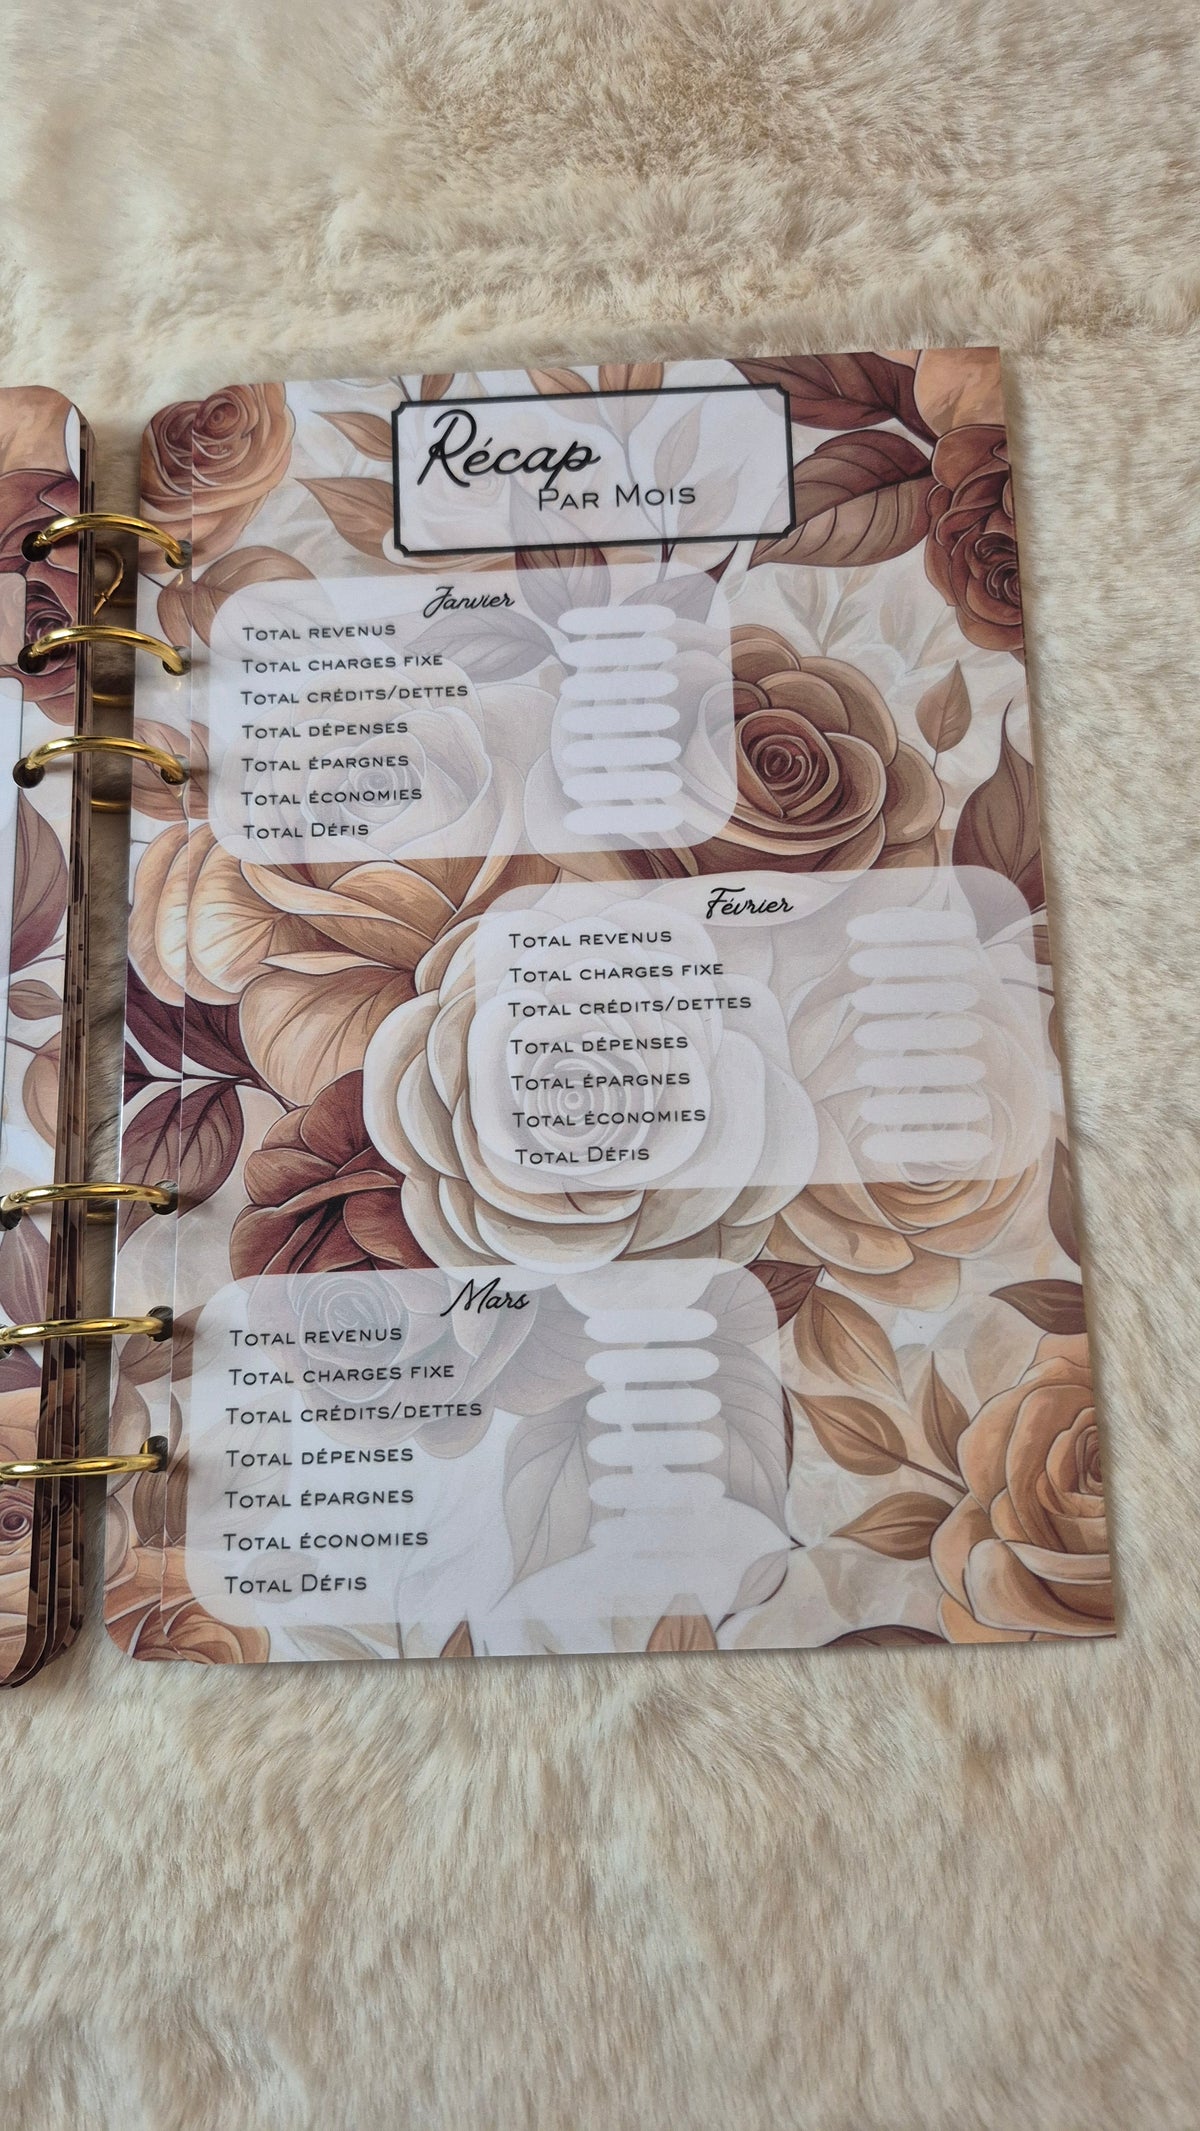 Récap
Par Mois
Janvier
Total revenus
Total charges fixe
Total crédits/dettes
Total dépenses
Total épargnes
Total économies
Total Défis
Février
Total revenus
Total charges fixe
Total crédits/dettes
Total dépenses
Total épargnes
Total économies
Total Défis
Mars
Total revenus
Total charges fixe
Total crédits/dettes
Total dépenses
Total épargnes
Total économies
Total Défis